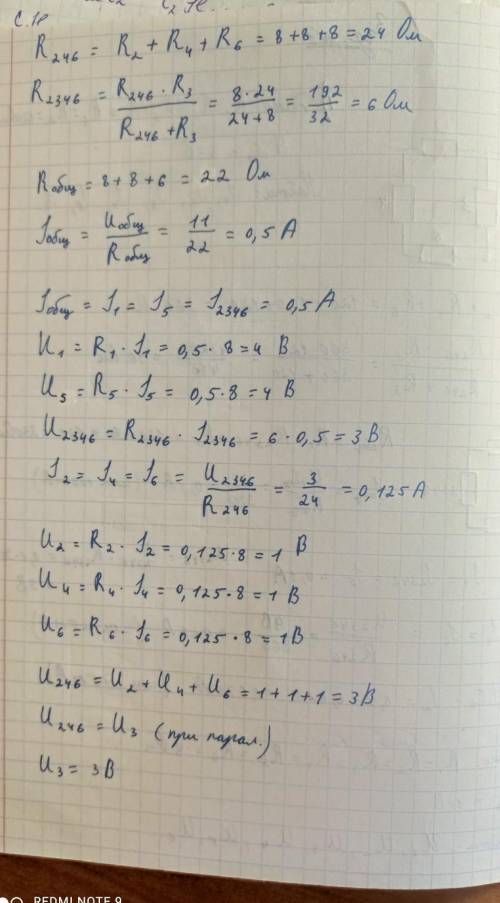 R₂₄₆ = R₂ + R₄ + R₆ = 8 + 8 + 8 = 24 Ом
R₂₃₄₆ = R₂₄₆ · R₃ / R₂₄₆ + R₃ = 8 · 24 / 24 + 8 = 192 / 32 = 6 Ом
Rобщ = 8 + 8 + 6 = 22 Ом
Iобщ = Uобщ / Rобщ = 11 / 22 = 0,5 А
Iобщ = I₁ = I₅ = I₂₃₄₆ = 0,5 А
U₁ = R₁ · I₁ = 0,5 · 8 = 4 В
U₅ = R₅ · I₅ = 0,5 · 8 = 4 В
U₂₃₄₆ = R₂₃₄₆ · I₂₃₄₆ = 6 · 0,5 = 3 В
I₂ = I₄ = I₆ = U₂₃₄₆ / R₂₄₆ = 3 / 24 = 0,125 А
U₂ = R₂ · I₂ = 0,125 · 8 = 1 В
U₄ = R₄ · I₄ = 0,125 · 8 = 1 В
U₆ = R₆ · I₆ = 0,125 · 8 = 1 В
U₂₄₆ = U₂ + U₄ + U₆ = 1 + 1 + 1 = 3 В
U₂₄₆ = U₃ (при парал.)
U₃ = 3 В
REDMI NOTE 9